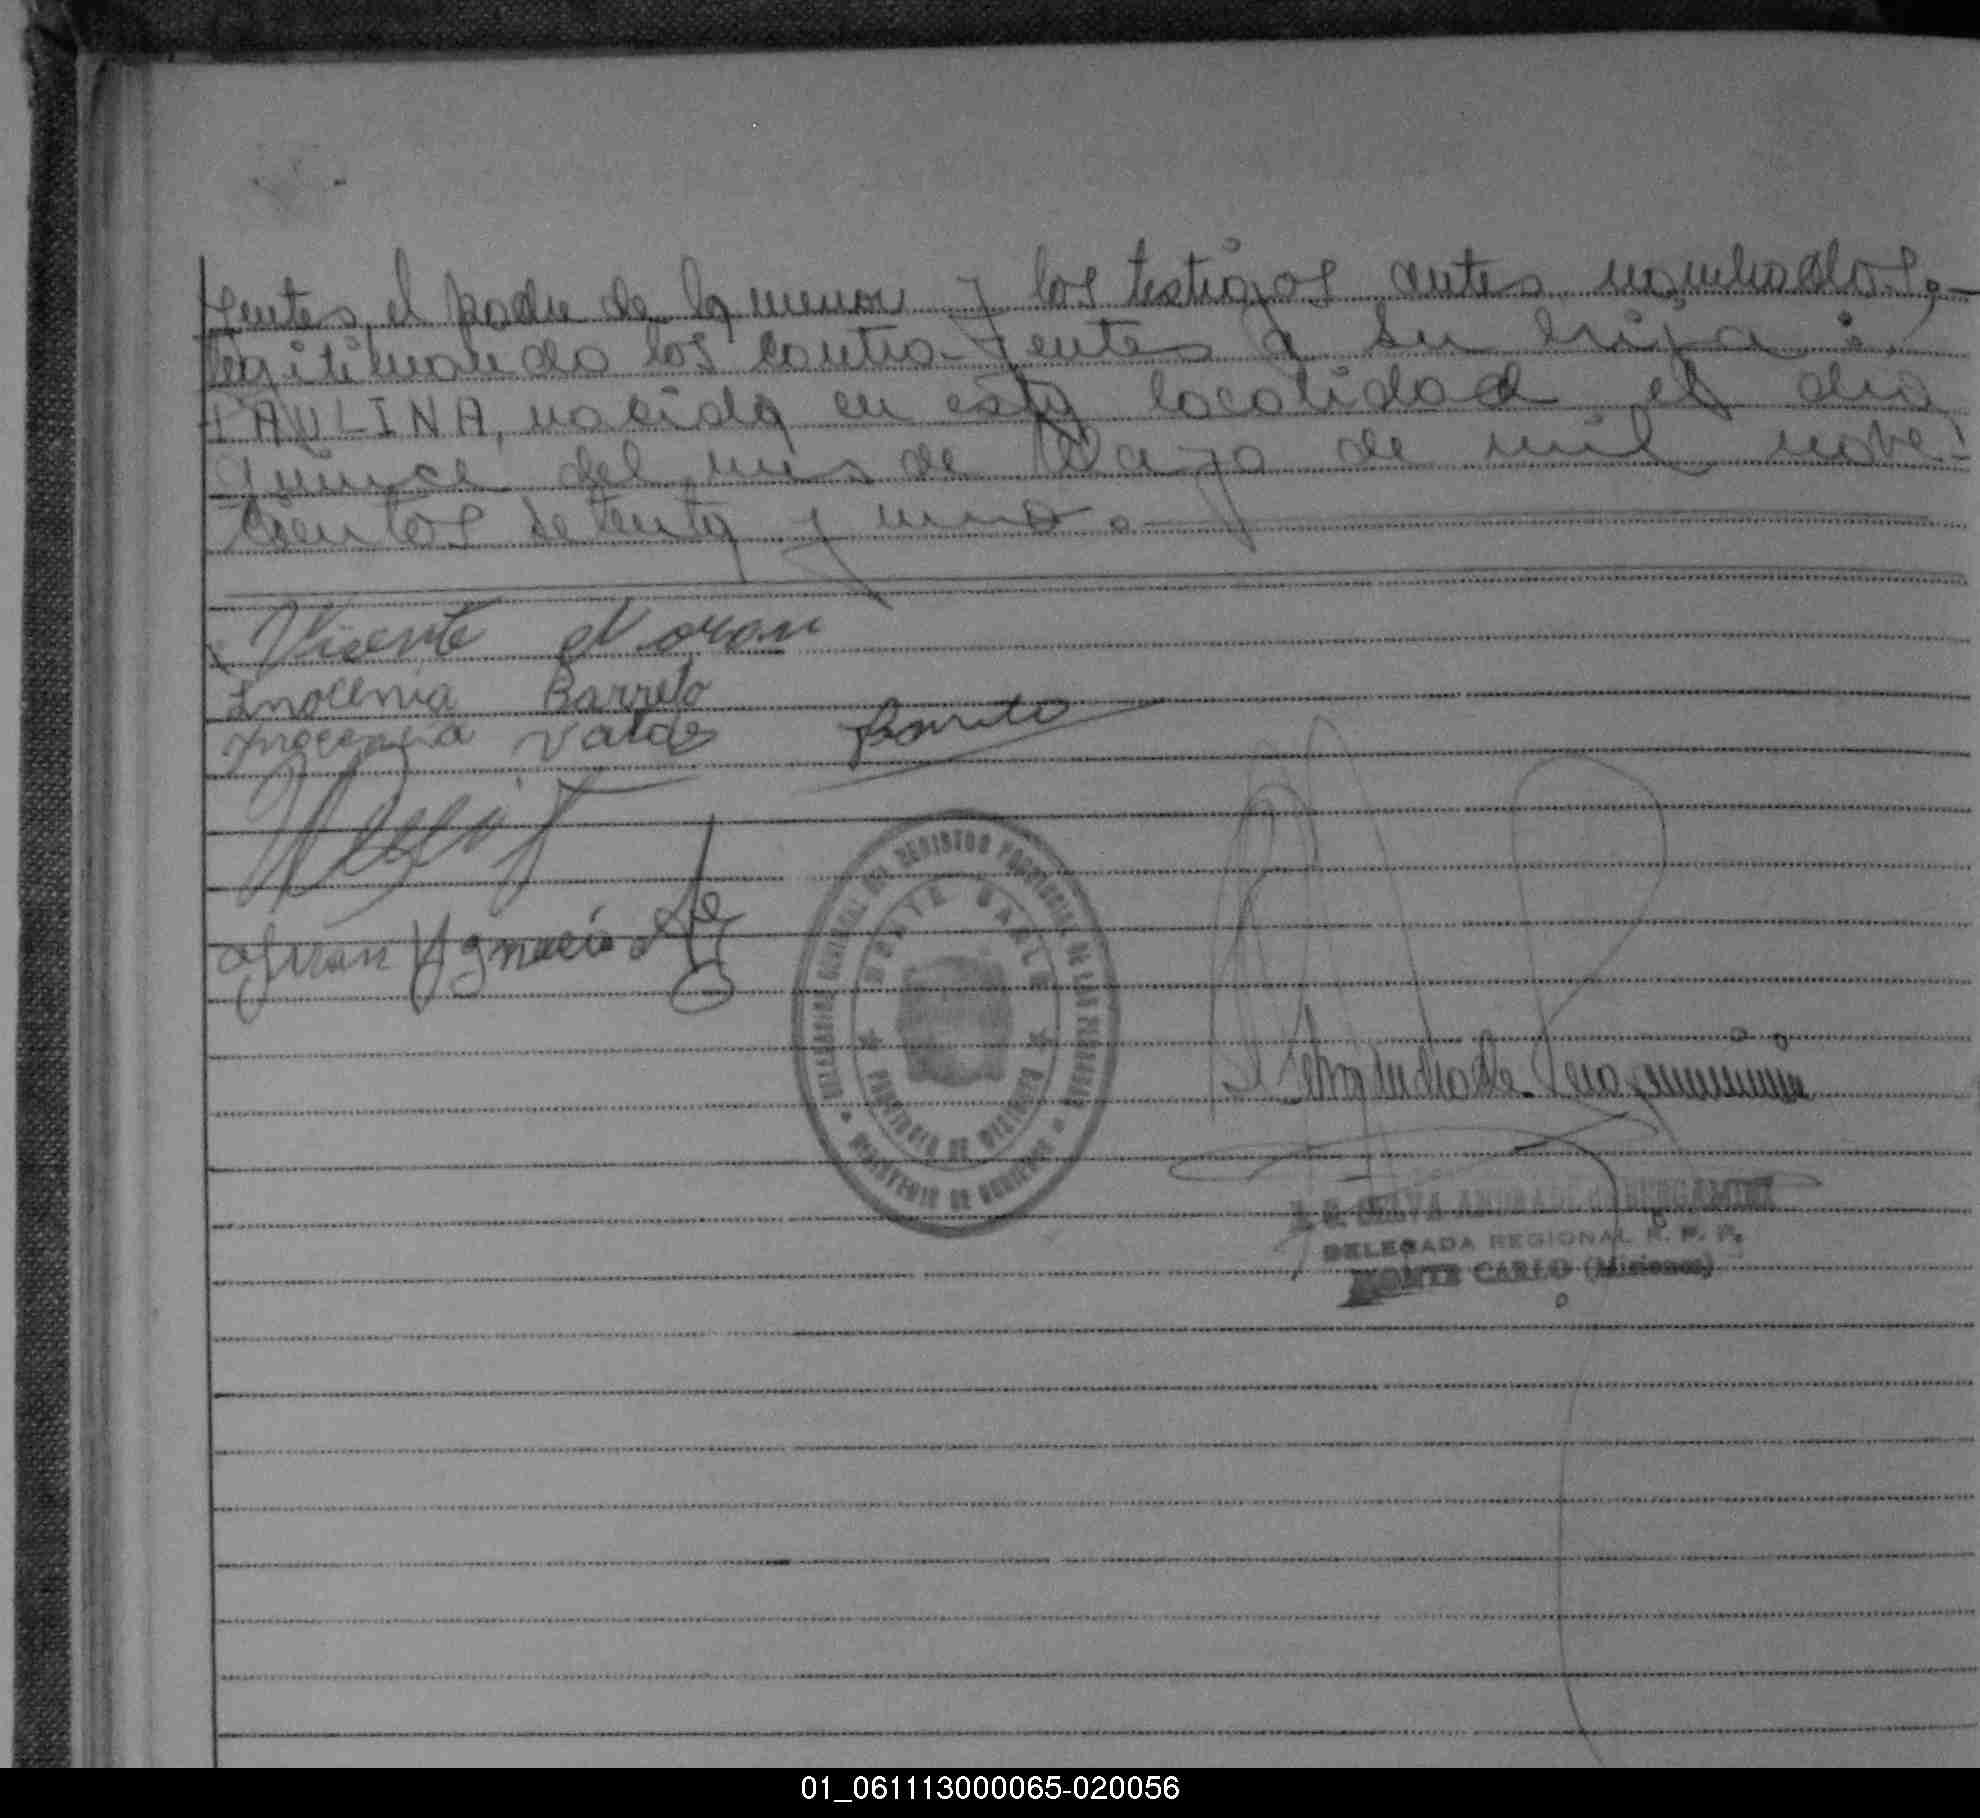 yentes, el padre de la menor y los testigos antes nombrados,-
legitimando los contra-yentes a su hija:
PAULINA, nacida en esta localidad el dia
quince del mes de Mayo de mil nove-
cientos setenta y uno.-
Vicente Moran
Inocencia Barreto
Inocencia Valde Barreto
Juan Ygnacio
DELEGACION GENERAL DEL REGISTRO PROVINCIAL DE LAS PERSONAS
MONTE CARLO
PROVINCIA DE MISIONES
MINISTERIO DE GOBIERNO
Selva Andrade Bergamini
SELVA ANDRADE BERGAMINI
DELEGADA REGIONAL R. P. P.
MONTE CARLO (Misiones)
01_061113000065-020056